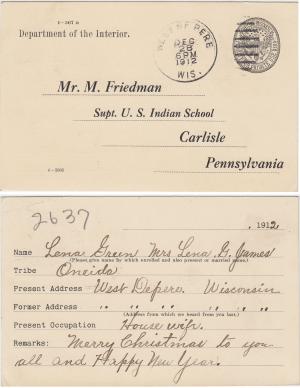 6-2477 b
Department of the Interior.
WEST DE PERE
DEC
28
6 PM
1912
WIS.
Mr. M. Friedman
Supt. U. S. Indian School
Carlisle
Pennsylvania
6-2605
2637
, 1912
Name Lena Green Mrs Lena G. James
(Please give name by which enrolled and also present or married name.)
Tribe Oneida
Present Address West Depere. Wisconsin
Former Address " " " " "
(Address from which we heard from you last.)
Present Occupation House wife.
Remarks: Merry Christmas to you
all and Happy New Year.